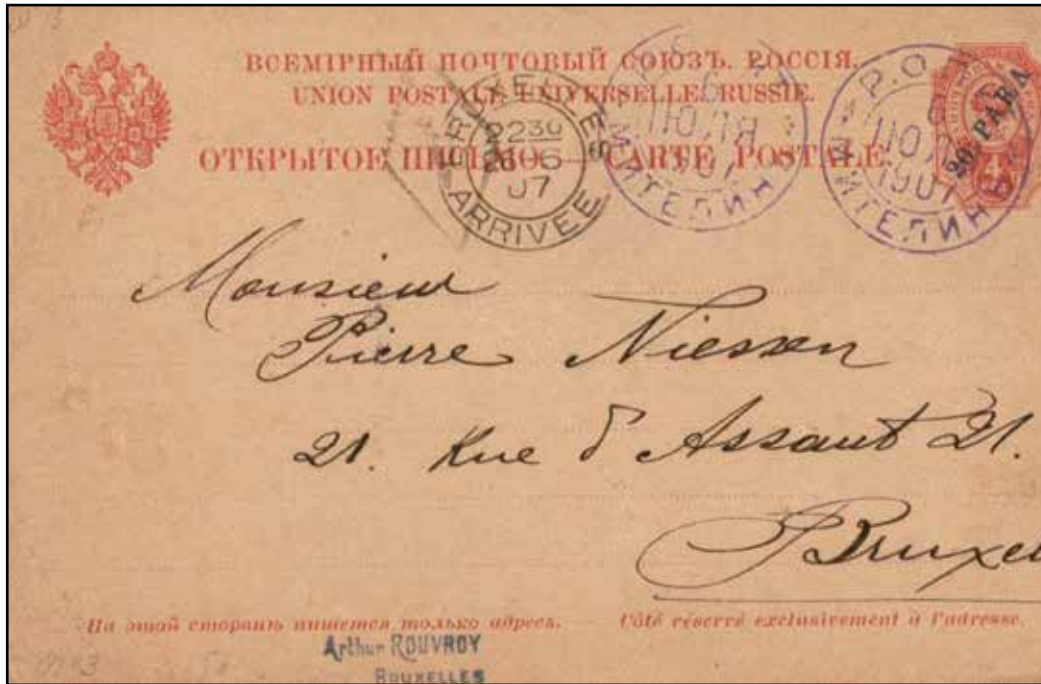 ВСЕМІРНЫЙ ПОЧТОВЫЙ СОЮЗЪ. РОССІЯ.
UNION POSTALE UNIVERSELLE. RUSSIE.
ОТКРЫТОЕ ПИСЬМО — CARTE POSTALE.
BRUXELLES
2230
07
ARRIVEE
ІЮЛЯ
МИТЕЛИНЪ
Р.О.
1907
МИТЕЛИНЪ
20 PARA
Monsieur
Pierre Niessen
21. Rue d'Assaut 21.
Bruxel
На этой сторонѣ пишется только адресъ. — Côté réservé exclusivement à l'adresse.
Arthur ROUVROY
BRUXELLES